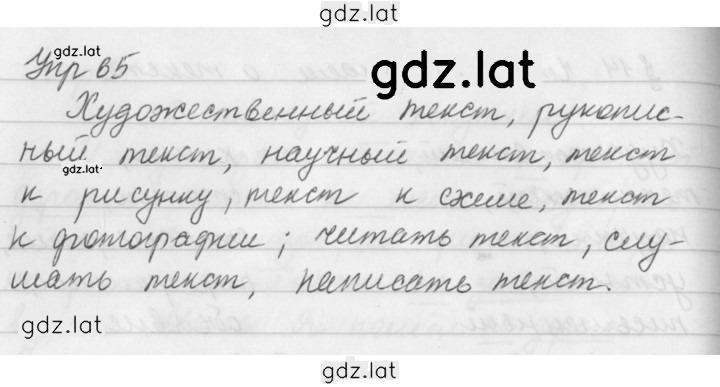 gdz.lat
gdz.lat
Упр 65
gdz.lat
Художественный текст, рукопис-
ный текст, научный текст, текст
gdz.lat
к рисунку, текст к схеме, текст
к фотографии; читать текст, слу-
шать текст, написать текст.
gdz.lat
gdz.lat